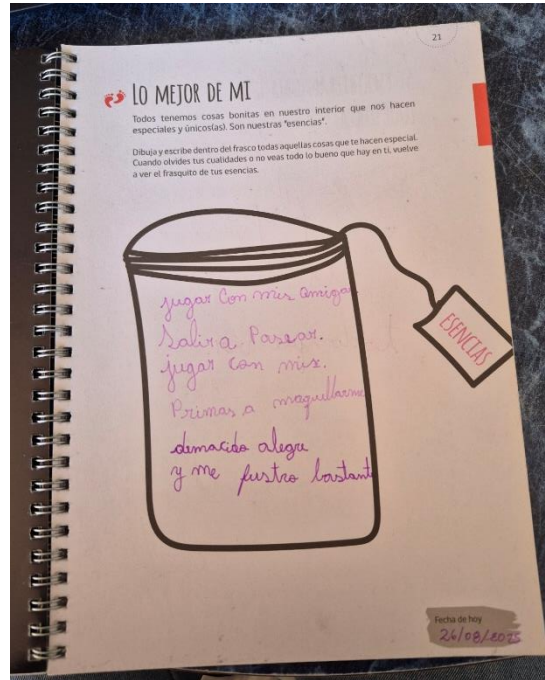 21
LO MEJOR DE MI
Todos tenemos cosas bonitas en nuestro interior que nos hacen
especiales y únicos(as). Son nuestras "esencias".
Dibuja y escribe dentro del frasco todas aquellas cosas que te hacen especial.
Cuando olvides tus cualidades o no veas todo lo bueno que hay en ti, vuelve
a ver el frasquito de tus esencias.
jugar Con mis amigas
Salir a Pasear.
jugar con mis.
Primas a maquillarme
demacido alegre
y me fustro bastante
ESENCIAS
Fecha de hoy
26/08/2025